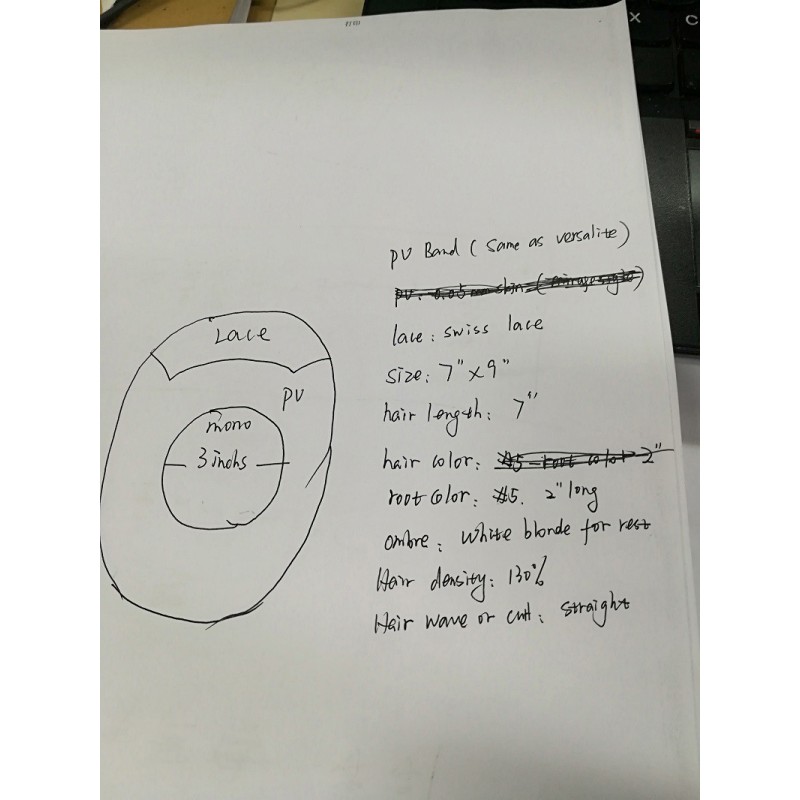 打印
X
C
PU Band (Same as versalite)
PU: 0.05mm skin (
lace: swiss lace
size: 7" x 9"
hair length: 7"
hair color: #5 root color 2"
root color: #5. 2" long
ombre: white blonde for rest
Hair density: 130%
Hair wave or curl: straight
Lace
PU
mono
3 inchs